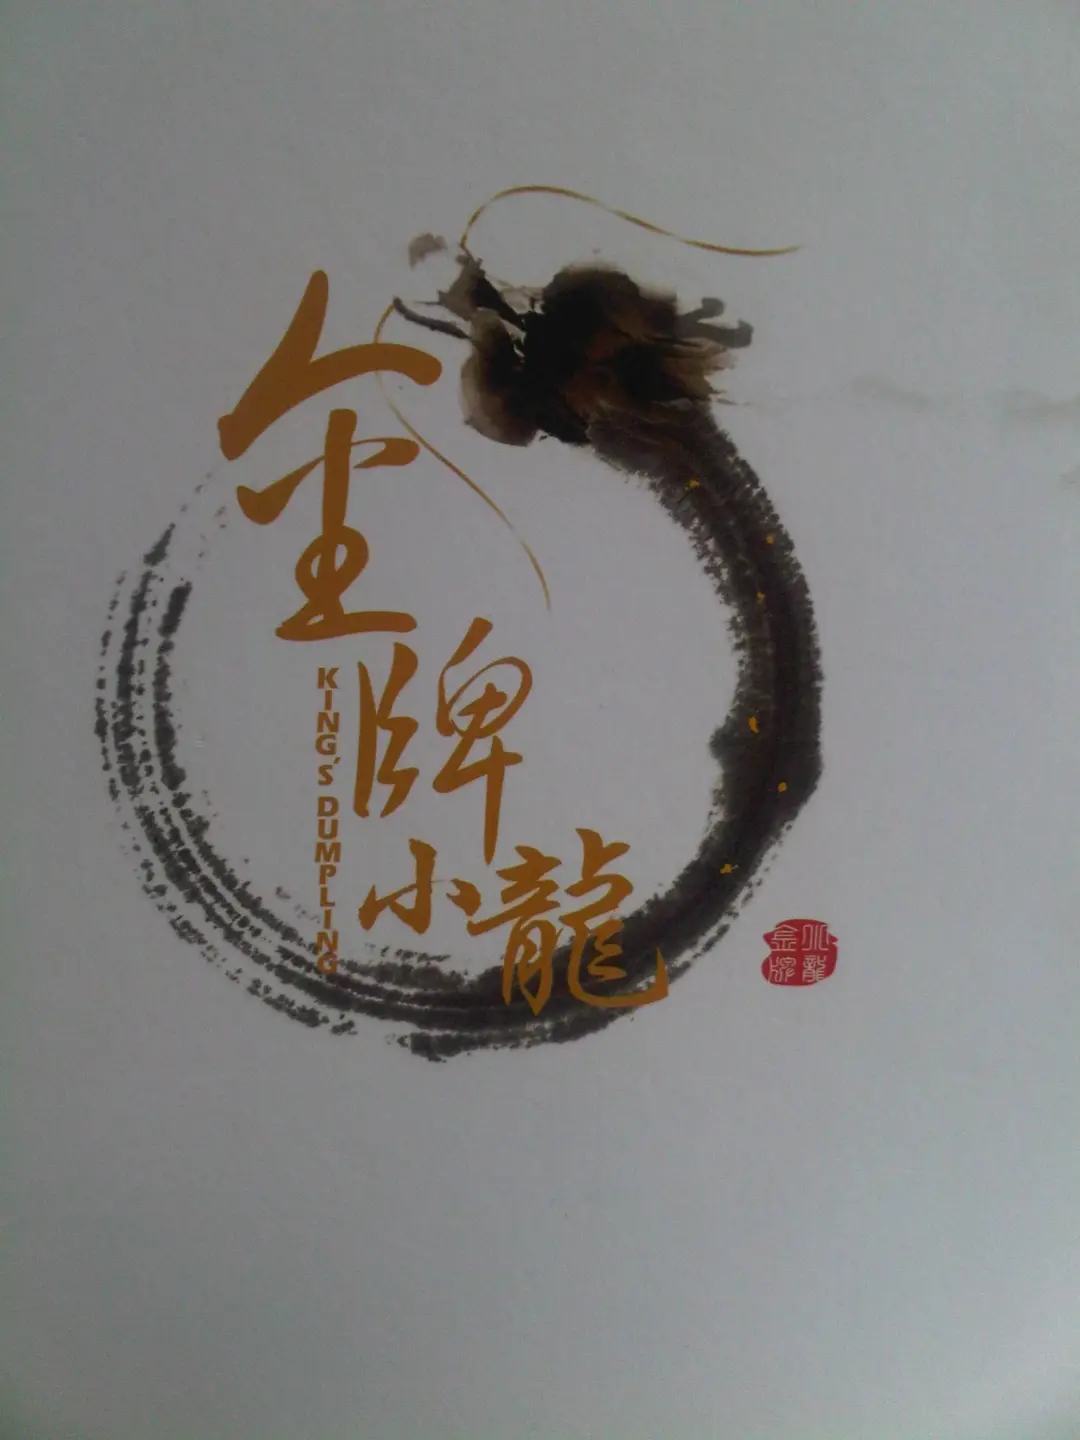 金牌
小龍
KING'S DUMPLING
金牌
小龍